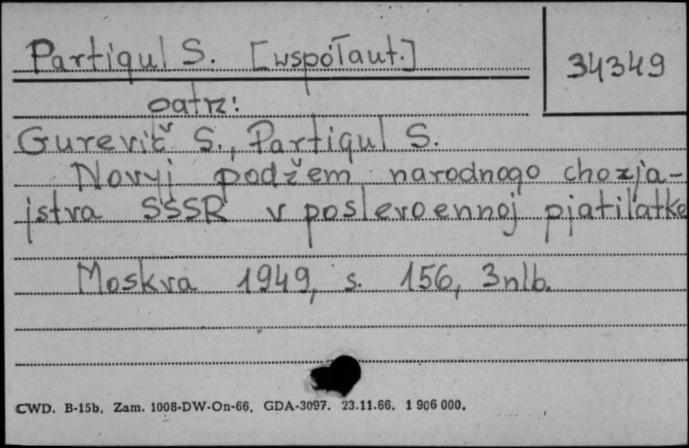 Partigul S. [współaut.]
34349
patrz:
Gurevič S., Partigul S.
Novyj podžem narodnogo chozja-
jstva SSSR v poslevoennoj pjatilatke
Moskva 1949, s. 156, 3nlb.
CWD. B-15b. Zam. 1008-DW-On-66. GDA-3097. 23.11.66. 1 906 000.